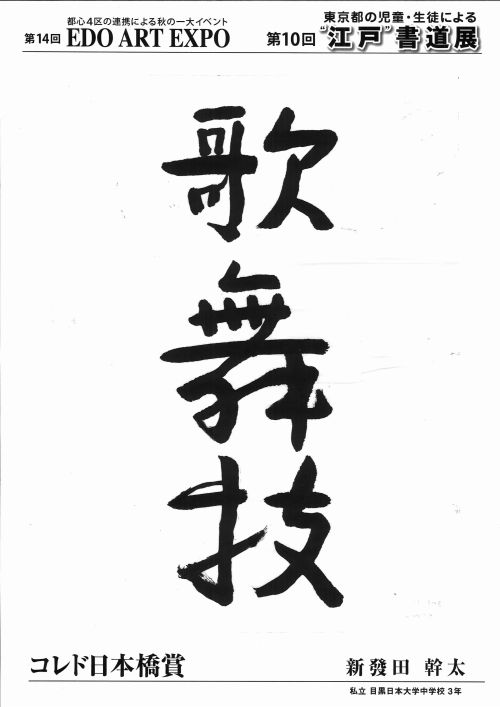 都心4区の連携による秋の一大イベント
第14回 EDO ART EXPO
東京都の児童・生徒による
第10回 "江戸"書道展
歌舞技
コレド日本橋賞
新發田 幹太
私立 目黒日本大学中学校 3年